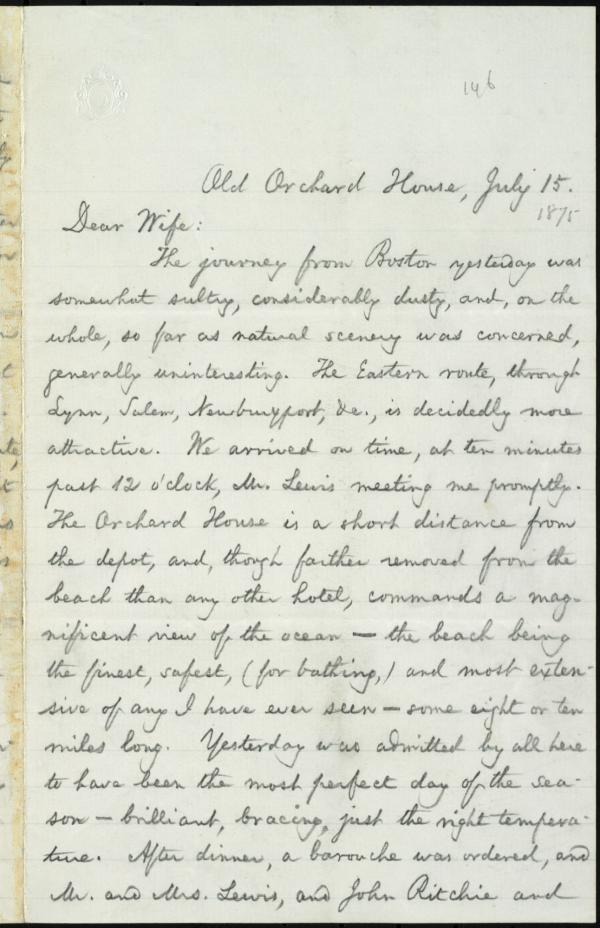 146
Old Orchard House, July 15.
1875
Dear Wife:
The journey from Boston yesterday was
somewhat sultry, considerably dusty, and, on the
whole, so far as natural scenery was concerned,
generally uninteresting. The Eastern route, through
Lynn, Salem, Newburyport, &c., is decidedly more
attractive. We arrived on time, at ten minutes
past 12 o'clock, Mr. Lewis meeting me promptly.
The Orchard House is a short distance from
the depot, and, though farther removed from the
beach than any other hotel, commands a mag-
nificent view of the ocean — the beach being
the finest, safest, (for bathing,) and most exten-
sive of any I have ever seen — some eight or ten
miles long. Yesterday was admitted by all here
to have been the most perfect day of the sea-
son — brilliant, bracing, just the right tempera-
ture. After dinner, a barouche was ordered, and
Mr. and Mrs. Lewis, and John Ritchie and